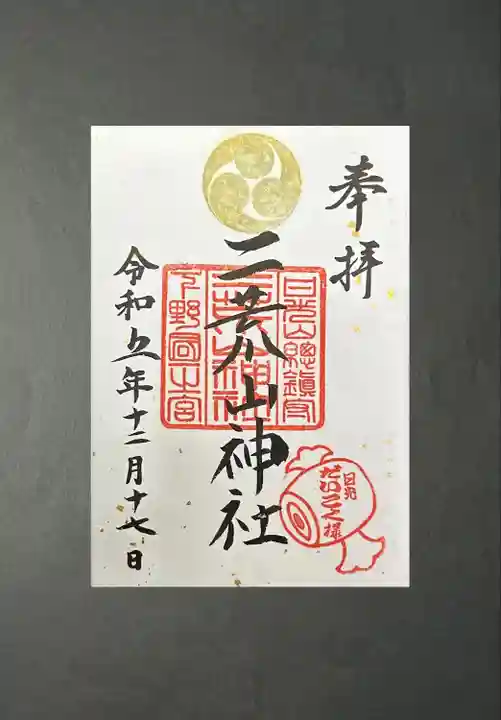 奉拝
二荒山神社
日光山總鎮守
二荒山神社
下野國一之宮
令和五年十二月十七日
日光
だいこく様